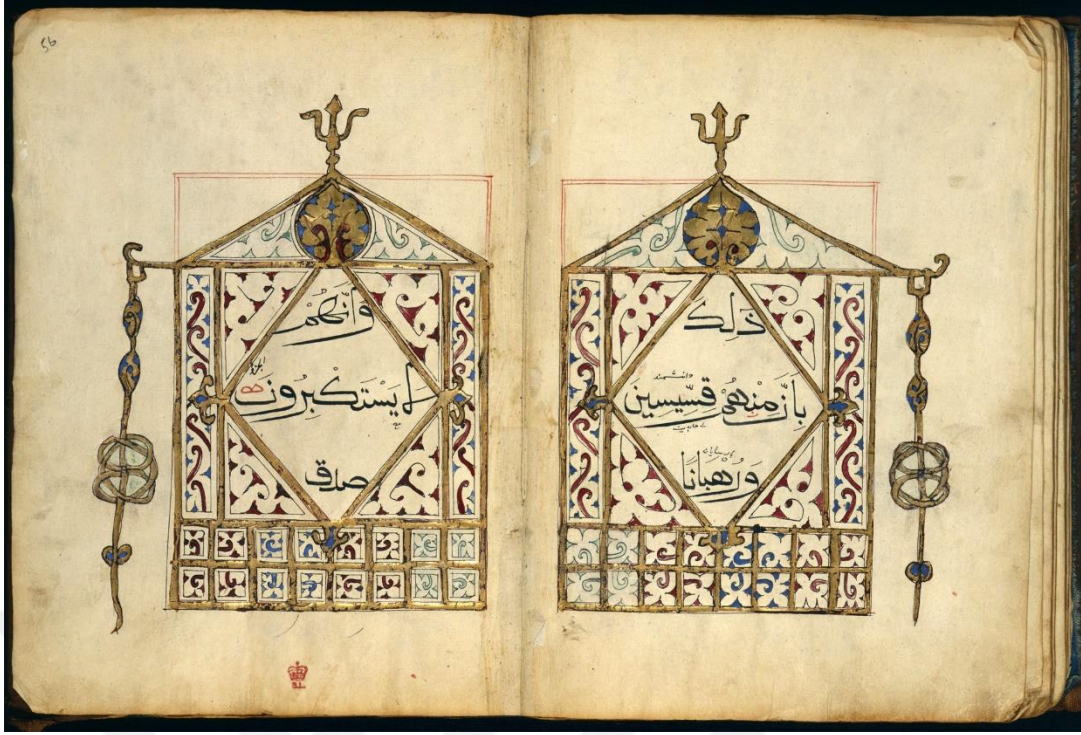 ذلك
بانّ منهم قسّيسين
ورُهبانا
وانّهم
لا يستكبرون
صدق
56